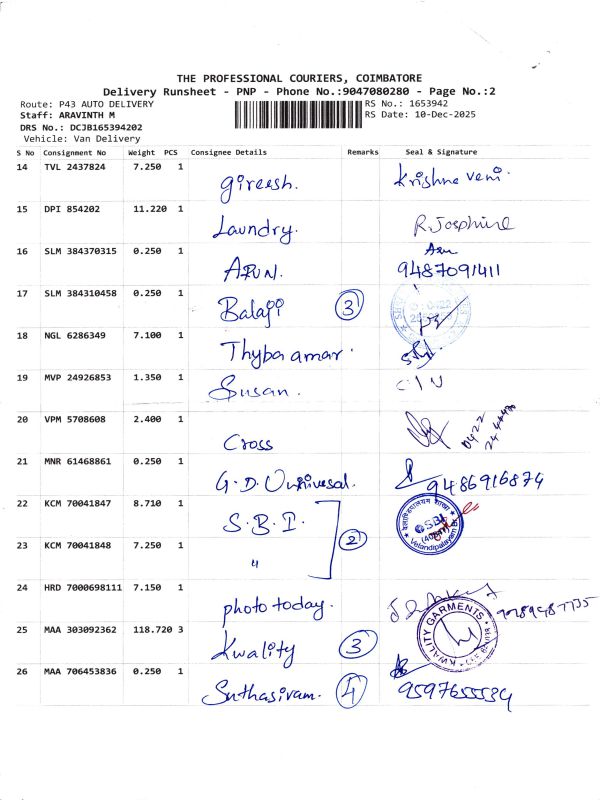 THE PROFESSIONAL COURIERS, COIMBATORE
Delivery Runsheet - PNP - Phone No.:9047080280 - Page No.:2
Route: P43 AUTO DELIVERY
RS No.: 1653942
Staff: ARAVINTH M
RS Date: 10-Dec-2025
DRS No.: DCJB165394202
Vehicle: Van Delivery
S No Consignment No Weight PCS Consignee Details Remarks Seal & Signature
14 TVL 2437824 7.250 1 gireesh. Krishna veni.
15 DPI 854202 11.220 1 Laundry. R. Josphine
16 SLM 384370315 0.250 1 ARUN. Arun
9487091411
17 SLM 384310458 0.250 1 Balaji 3
18 NGL 6286349 7.100 1 Thyba amar.
19 MVP 24926853 1.350 1 Susan.
20 VPM 5708608 2.400 1 Cross 0422
21 MNR 61468861 0.250 1 G.D. Universal. 9486916874
22 KCM 70041847 8.710 1 S.B.I. 2 SBI
Velandipalayam Br.
23 KCM 70041848 7.250 1 "
24 HRD 7000698111 7.150 1 photo today.
25 MAA 303092362 118.720 3 Kwality 3 KWALITY GARMENTS
26 MAA 706453836 0.250 1 Suthasivam. 4 9597655534